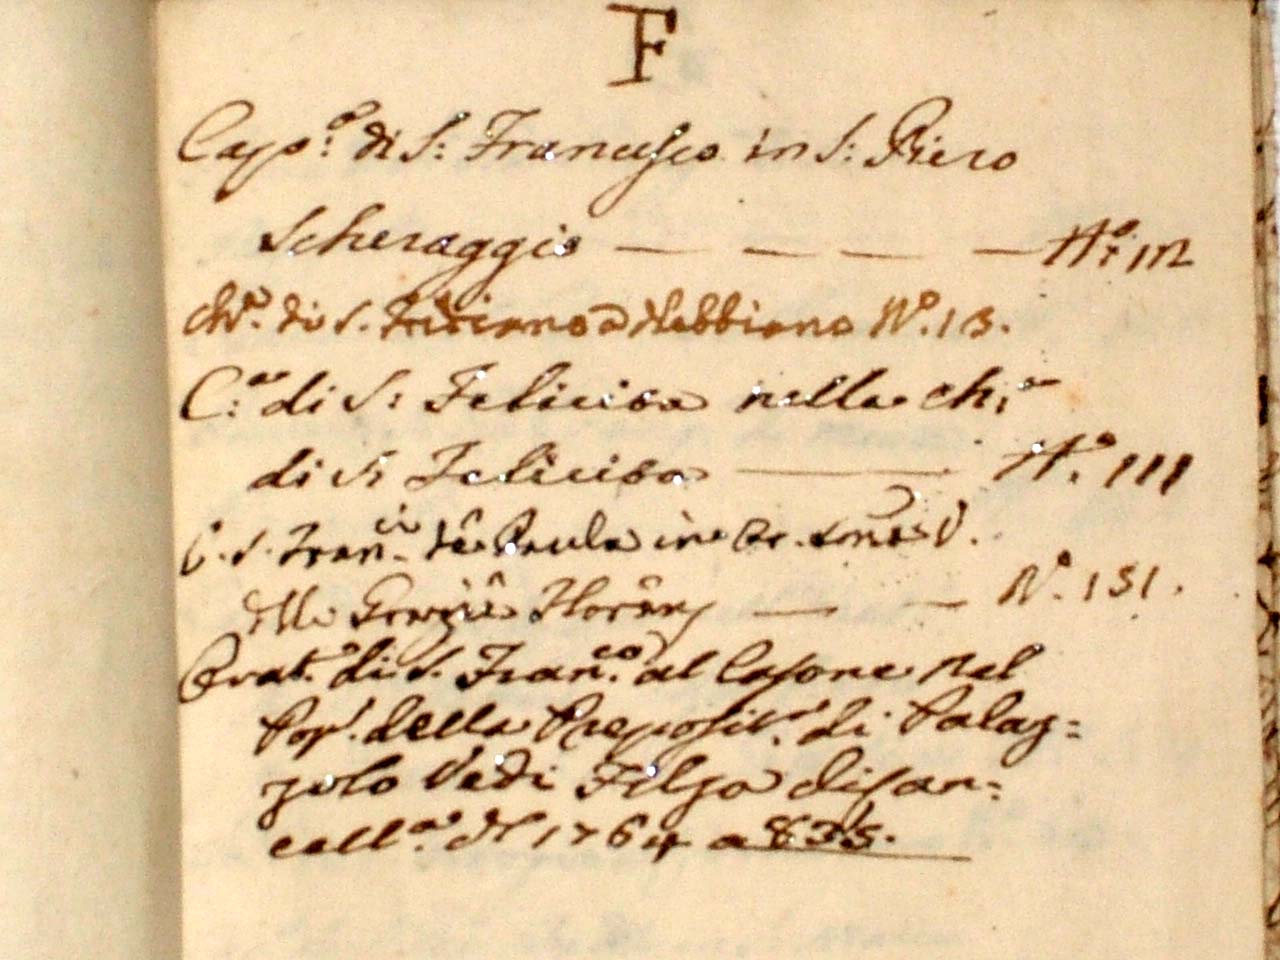 F
Capp.ª di S: Francesco in S: Piero
Scheraggio — — — — N.º 112
Ch.ª di S. a Nebbiano N.º 13.
C.ª di S: Felicita nella ch.ª
di S. Felicita — N.º 111
C. S. Fran.ci de Paula in
delle — — N.º 151.
di S. Fran.co al Casone nel
Pop.º della Preposit.ª di Palaz=
zolo Vedi Filza di Can=
cell.ª del 1764 a 835.